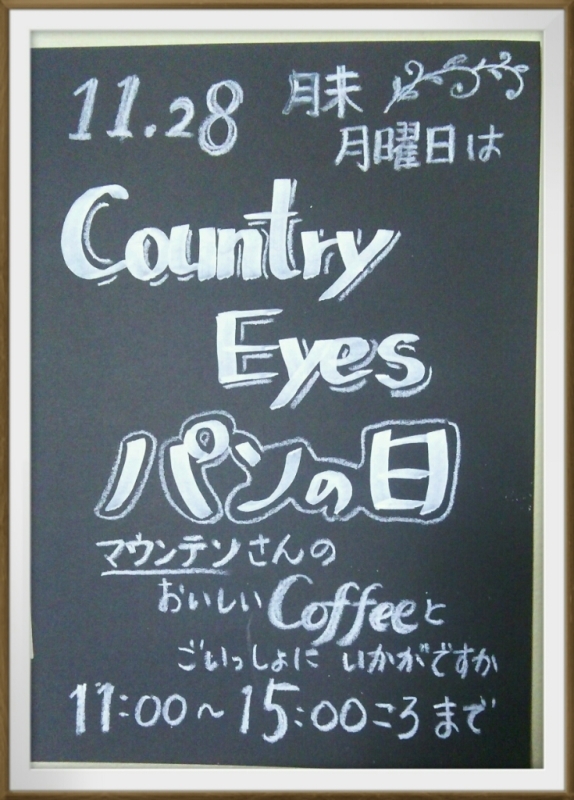 11.28 月末
月曜日は
Country
Eyes
パンの日
マウンテンさんの
おいしいCoffeeと
ごいっしょに いかがですか
11:00〜15:00ころまで